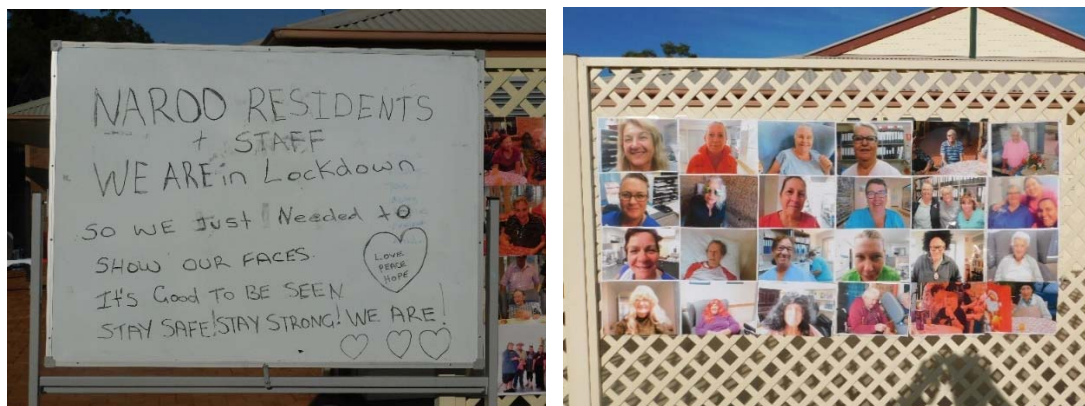 NAROO RESIDENTS
+ STAFF
WE ARE in Lockdown
SO WE Just Needed to
SHOW OUR FACES.
It's Good TO BE SEEN
STAY SAFE! STAY STRONG! WE ARE!
LOVE
PEACE
HOPE